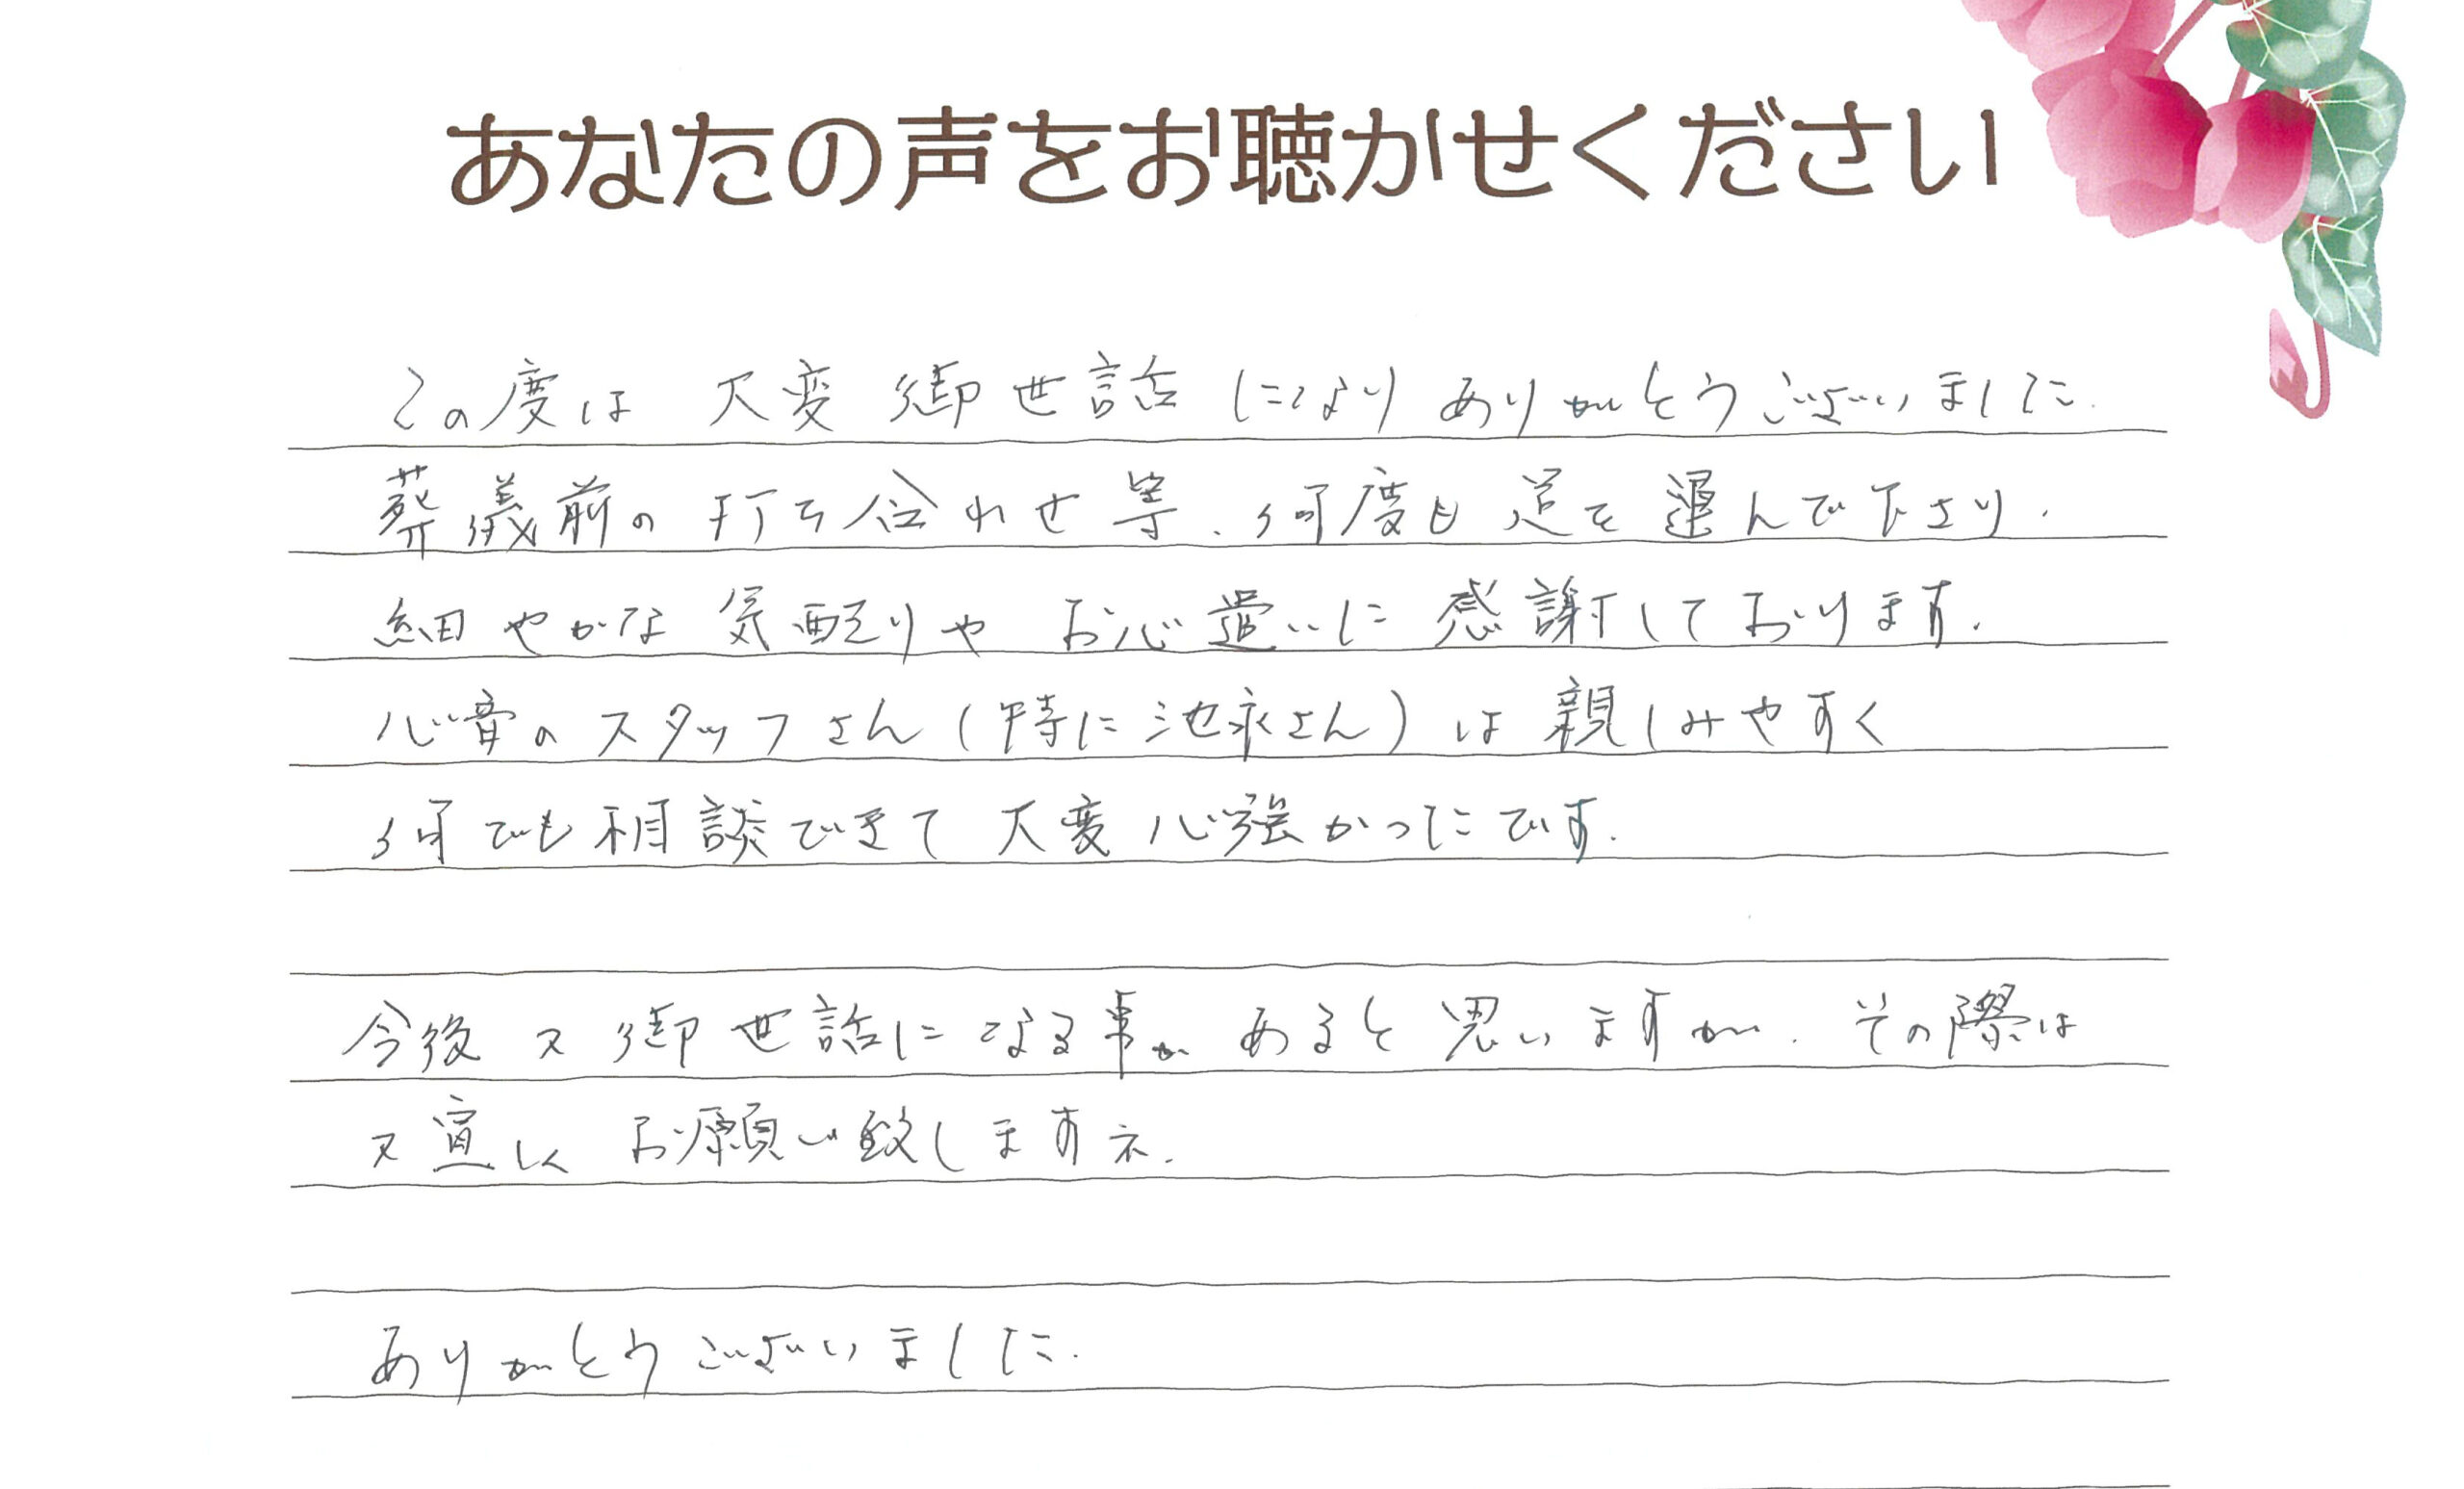 あなたの声をお聴かせください
この度は 大変 御世話になり ありがとうございました.
葬儀前の打ち合わせ等、何度も足を運んで下さり、
細やかな気配りや お心遣いに感謝しております.
心音のスタッフさん(特に池永さん)は親しみやすく
何でも相談できて大変心強かったです.
今後又御世話になる事があると思いますが、その際は
又宜しく お願い致しますネ.
ありがとうございました.